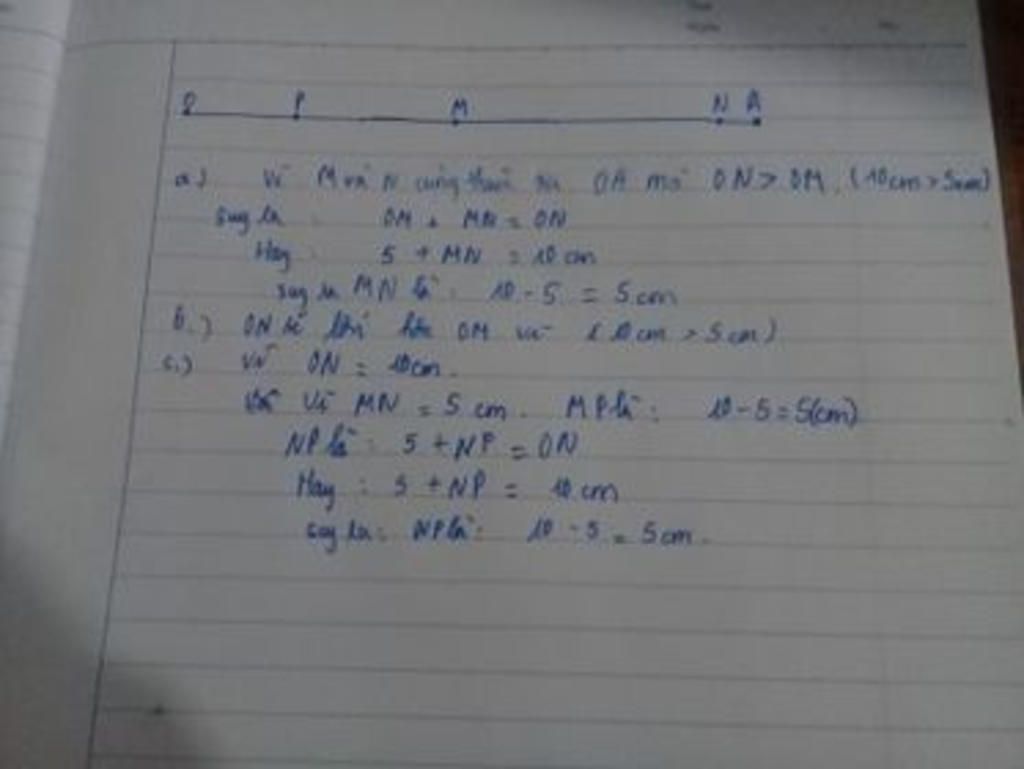 O P M N A
a) Vì M và N cùng thuộc tia OA mà ON > OM. (10cm > 5cm)
suy ra : OM + MN = ON
Hay : 5 + MN = 10 cm
suy ra MN là : 10 - 5 = 5 cm
b.) ON sẽ OM vì (10cm > 5cm)
c.) Vì ON = 10cm.
Vì MN = 5 cm. MP là : 10 - 5 = 5(cm)
NP là : 5 + NP = ON
Hay : 5 + NP = 10 cm
suy ra : NP là : 10 - 5 = 5 cm.